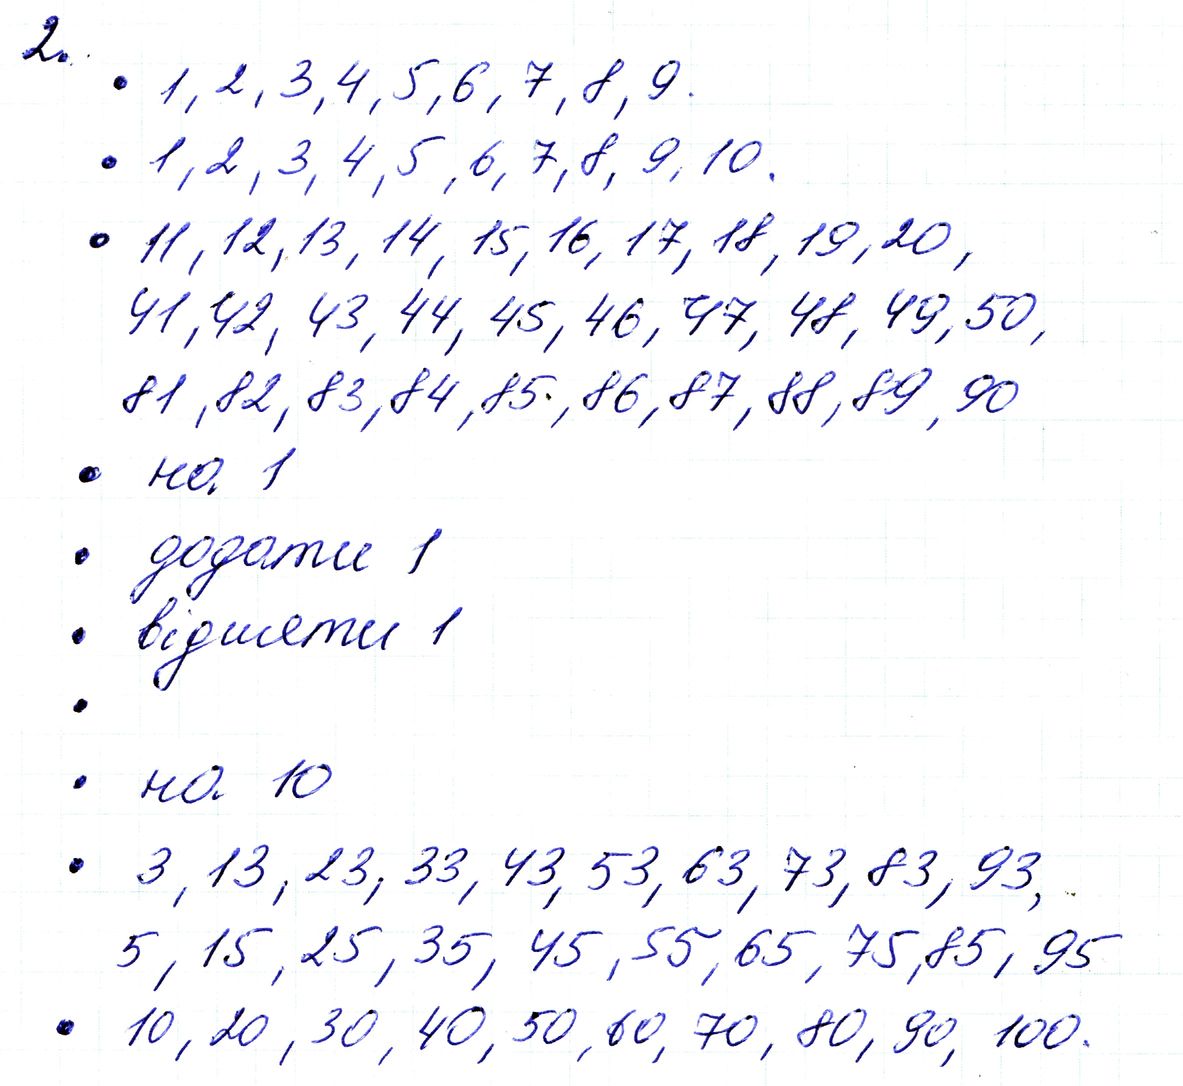 2.
• 1, 2, 3, 4, 5, 6, 7, 8, 9.
• 1, 2, 3, 4, 5, 6, 7, 8, 9, 10.
• 11, 12, 13, 14, 15, 16, 17, 18, 19, 20,
41, 42, 43, 44, 45, 46, 47, 48, 49, 50,
81, 82, 83, 84, 85, 86, 87, 88, 89, 90
• на 1
• додати 1
• відняти 1
•
• на 10
• 3, 13, 23, 33, 43, 53, 63, 73, 83, 93,
5, 15, 25, 35, 45, 55, 65, 75, 85, 95
• 10, 20, 30, 40, 50, 60, 70, 80, 90, 100.